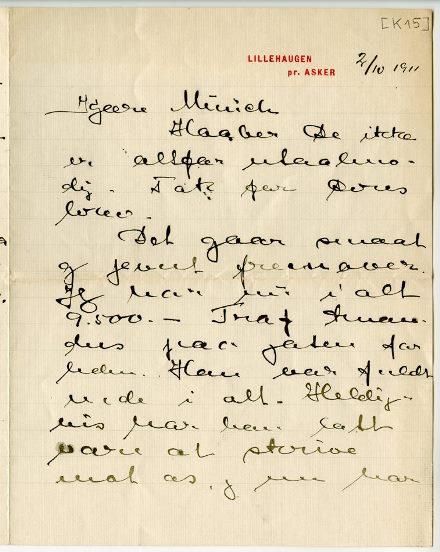 [K15]
LILLEHAUGEN
pr. ASKER
2/10 1911
Kjære Munch
Haaber De ikke
er altfor utaalmo-
dig. Tak for Deres
brev.
Det gaar smaat
og jevnt fremover.
Jeg har nu i alt
9.500.– Traf Aman-
dus paa gaten for
leden. Han var fuldt
inde i alt. Heldig-
vis har han latt
være at skrive
mot os, og nu har